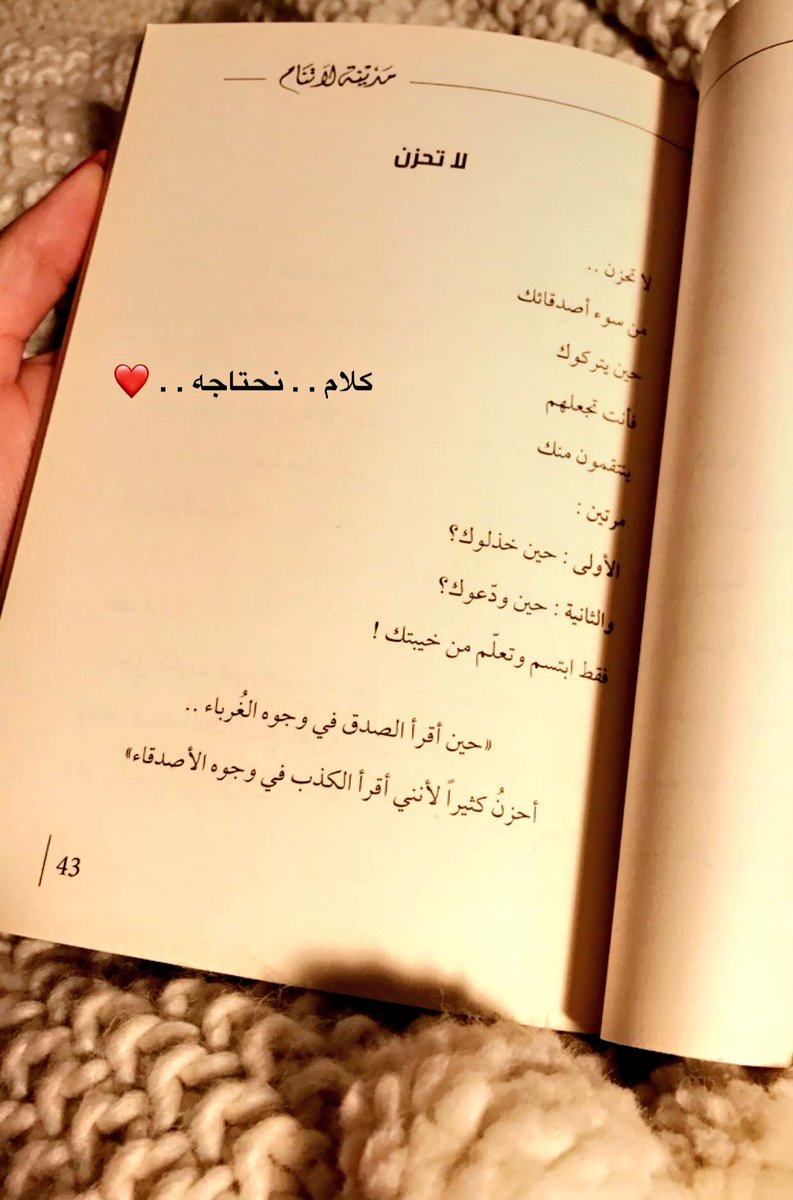 مَدْيْنَة لَا تَنَام
لا تحزن
لا تحزن ..
من سوء أصدقائك
حين يتركوك
كلام . . نحتاجه . . ❤️
فأنت تجعلهم
ينتقمون منك
مرتين :
الأولى : حين خذلوك؟
والثانية : حين ودّعوك؟
فقط ابتسم وتعلّم من خيبتك !
«حين أقرأ الصدق في وجوه الغُرباء ..
أحزنُ كثيراً لأنني أقرأ الكذب في وجوه الأصدقاء»
43